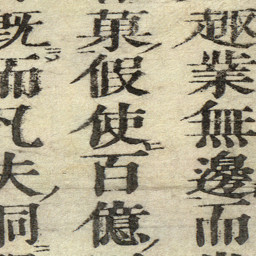 趣業無邊而
菓假使百億
既而凡夫同